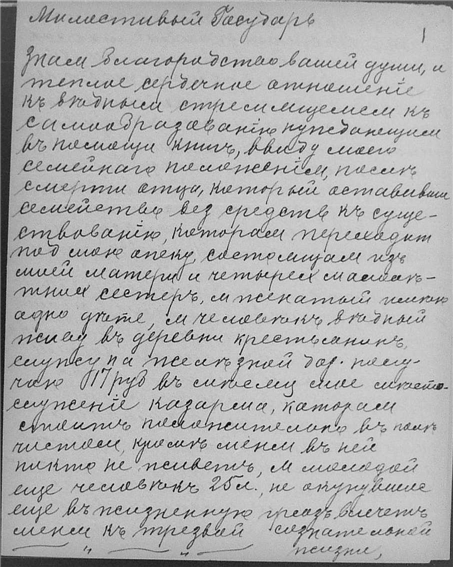 Милостивый Государь
1
Зная Благородство вашей души, и
теплое сердечное отношение
къ бѣднымъ стремящемся къ
самообразованію нуждающимся
въ помощи книгъ, ввиду моего
семейнаго положенія, послѣ
смерти отца, который оставивши
семейство безъ средствъ къ суще-
ствованію, которая переходитъ
под мою опеку, состоящая изъ
моей матери и четырехъ малолѣ-
тнихъ сестеръ, я женатый имѣю
одно дитѣ, я человѣкъ бѣдный
живу въ деревни крестьянинъ,
служу на желѣзной дор. полу-
чаю 17 руб въ мѣсяцъ мое место-
служеніе казарма, которая
стоитъ положительно въ полѣ
чистомъ, кромѣ меня въ ней
никто не живетъ, я молодой
еще человѣкъ 25 л., не окунувшие
еще въ жизненную грязь, влечетъ
меня къ трезвой сознательной
жизни,